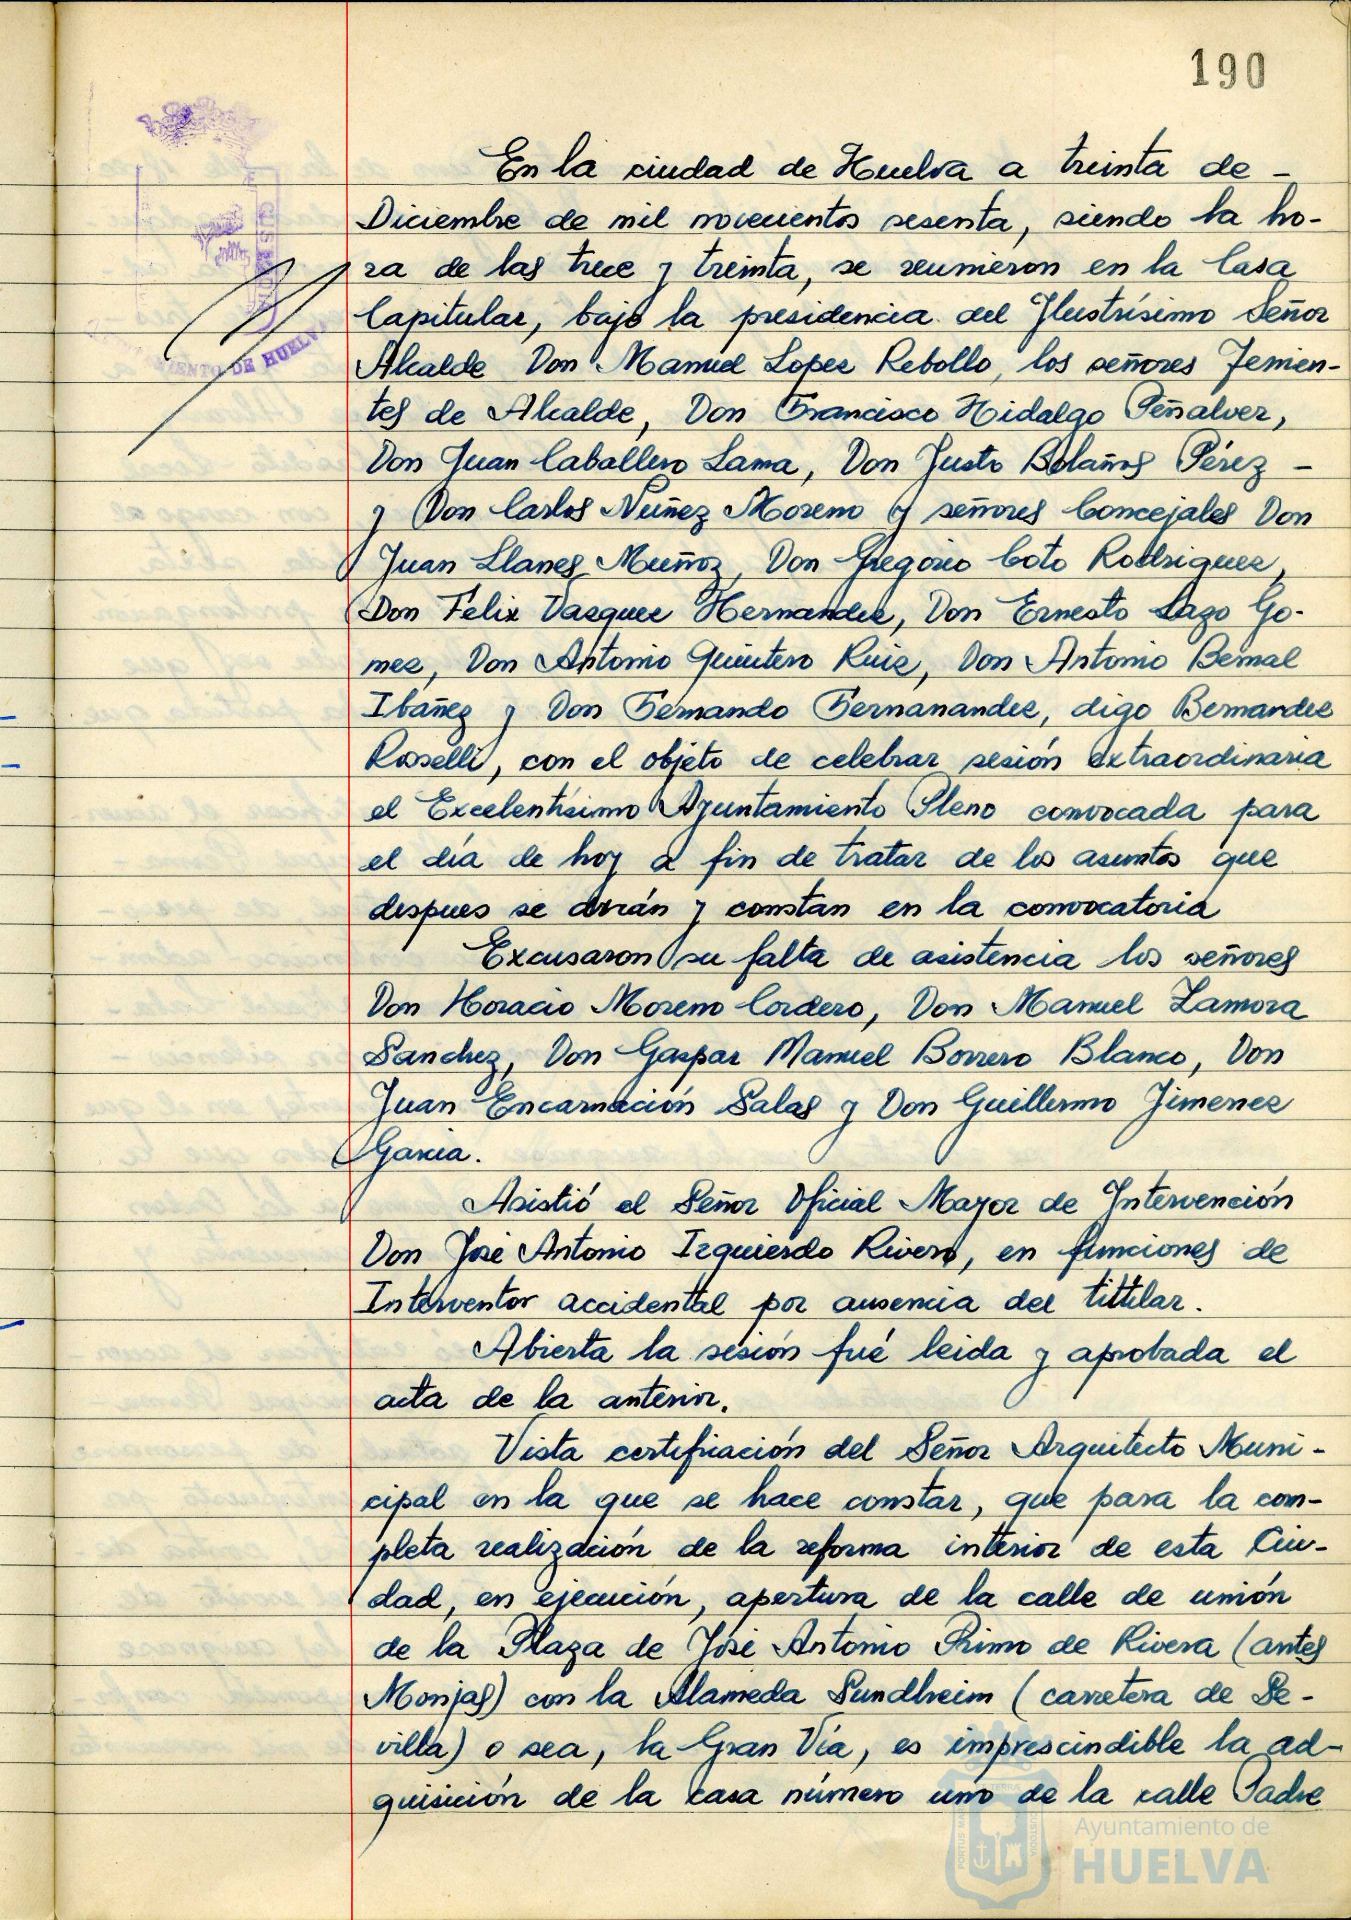 190
En la ciudad de Huelva a treinta de -
Diciembre de mil novecientos sesenta, siendo la ho-
ra de las trece y treinta, se reunieron en la Casa
Capitular, bajo la presidencia del Ilustrísimo Señor
Alcalde Don Manuel Lopez Rebollo, los señores Tenien-
tes de Alcalde, Don Francisco Hidalgo Peñalver,
Don Juan Caballero Lama, Don Justo Bolaños Pérez -
y Don Carlos Núñez Moreno y señores Concejales Don
Juan Llanes Muñoz, Don Gregorio Coto Rodriguez,
Don Felix Vasquez Hernandez, Don Ernesto Lazo Go-
mez, Don Antonio Quintero Ruiz, Don Antonio Bernal
Ibáñez y Don Fernando Fernanandez, digo Bernandez
Rosselli, con el objeto de celebrar sesión extraordinaria
el Excelentísimo Ayuntamiento Pleno convocada para
el día de hoy a fin de tratar de los asuntos que
despues se dirán y constan en la convocatoria
Excusaron su falta de asistencia los señores
Don Horacio Moreno Cordero, Don Manuel Zamora
Sanchez, Don Gaspar Manuel Borrero Blanco, Don
Juan Encarnación Salas y Don Guillermo Jimenez
Garcia.
Asistió el Señor Oficial Mayor de Intervención
Don José Antonio Izquierdo Rivero, en funciones de
Interventor accidental por ausencia del titular.
Abierta la sesión fué leida y aprobada el
acta de la anterior.
Vista certificación del Señor Arquitecto Muni-
cipal en la que se hace constar, que para la com-
pleta realización de la reforma interior de esta Ciu-
dad, en ejecución, apertura de la calle de unión
de la Plaza de José Antonio Primo de Rivera (antes
Monjas) con la Alameda Sundheim (carretera de Se-
villa) o sea, la Gran Vía, es imprescindible la ad-
quisición de la casa número uno de la calle Padre
CUSTODIA
MIENTO DE HUELVA
Ayuntamiento de
HUELVA